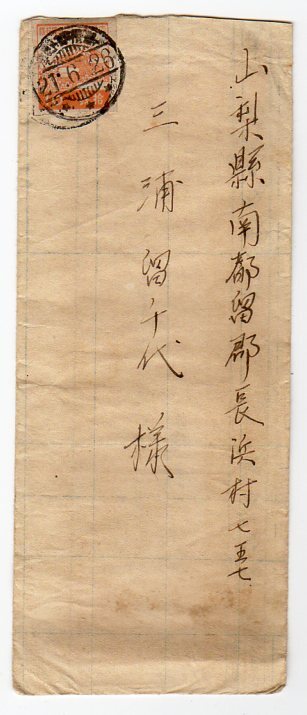 山梨縣南都留郡長浜村七五七
三浦留千代様
21.6.26